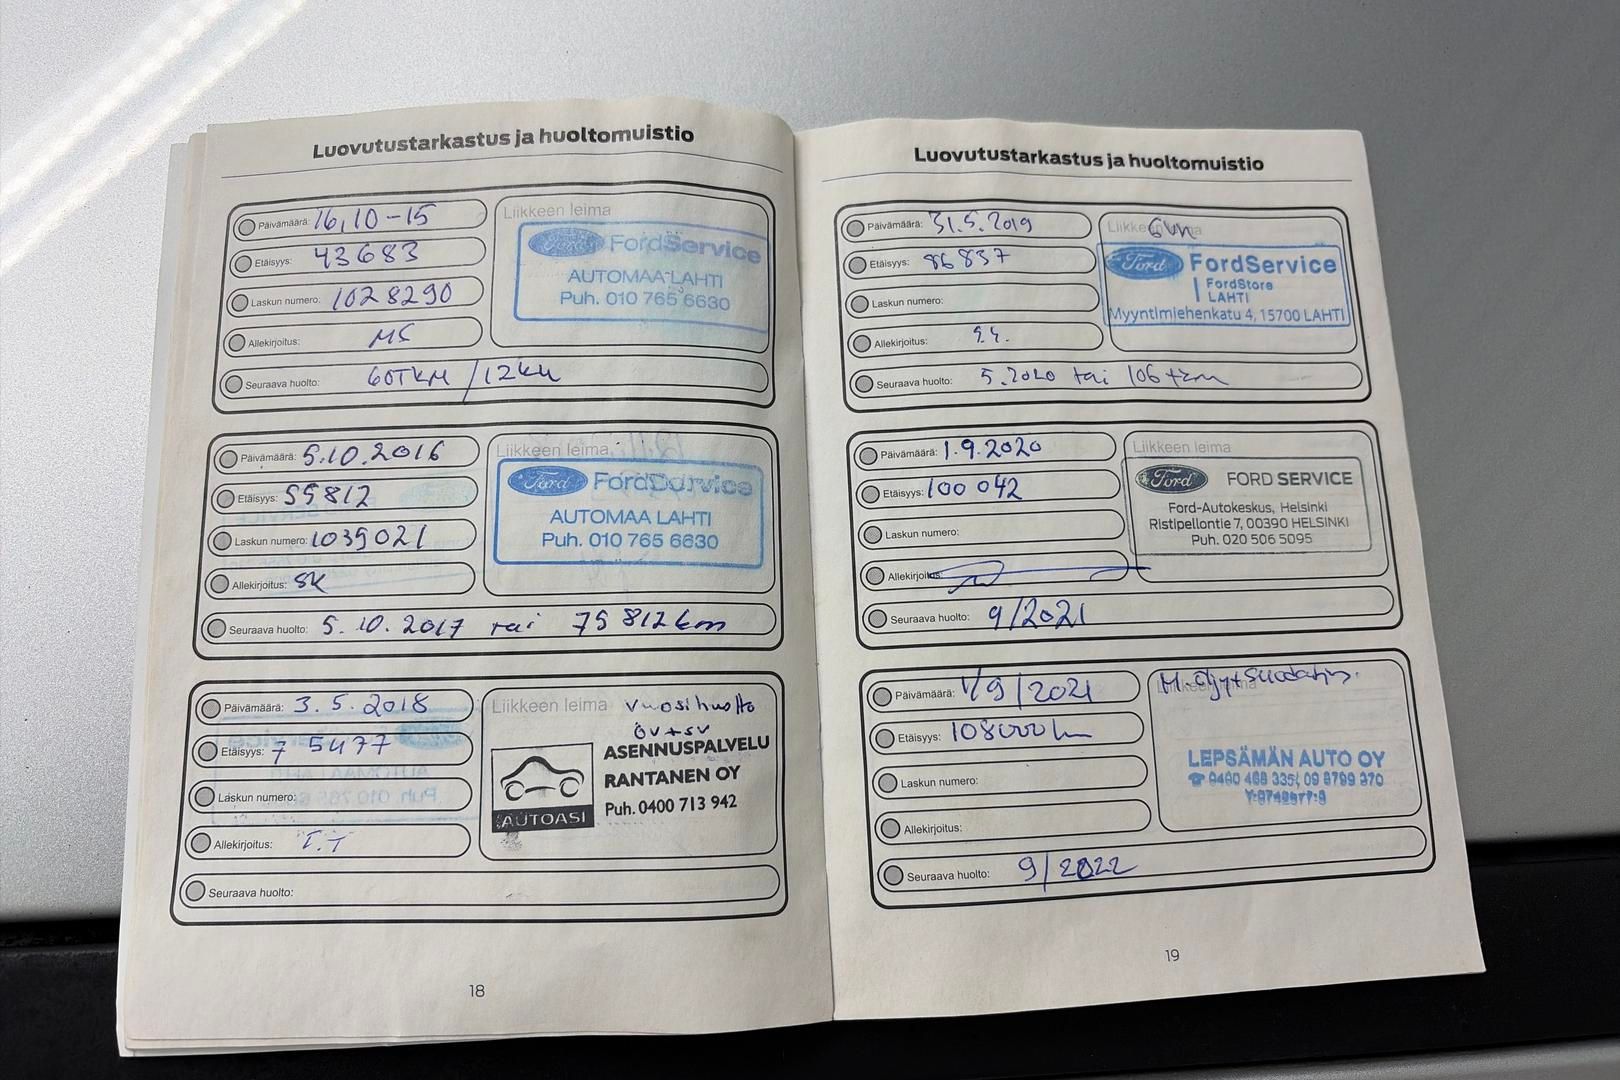 Luovutustarkastus ja huoltomuistio
Päivämäärä: 16,10-15
Etäisyys: 43683
Laskun numero: 1028290
Allekirjoitus: MS
Seuraava huolto: 60TKM / 12kk
Liikkeen leima
Ford FordService
AUTOMAA LAHTI
Puh. 010 765 6630
Päivämäärä: 5.10.2016
Etäisyys: 55812
Laskun numero: 1039021
Allekirjoitus: SK
Seuraava huolto: 5.10.2017 tai 75812km
Liikkeen leima
Ford FordService
AUTOMAA LAHTI
Puh. 010 765 6630
Päivämäärä: 3.5.2018
Etäisyys: 75477
Laskun numero:
Allekirjoitus: T.T
Seuraava huolto:
Liikkeen leima vuosihuolto
öv+sv
ASENNUSPALVELU
RANTANEN OY
Puh. 0400 713 942
AUTOASI
18
Luovutustarkastus ja huoltomuistio
Päivämäärä: 31.5.2019
Etäisyys: 86837
Laskun numero:
Allekirjoitus:
Seuraava huolto: 5.2020 tai 106 tkm
Liikkeen leima
Ford FordService
FordStore
LAHTI
Myyntimiehenkatu 4, 15700 LAHTI
Päivämäärä: 1.9.2020
Etäisyys: 100 042
Laskun numero:
Allekirjoitus:
Seuraava huolto: 9/2021
Liikkeen leima
Ford FORD SERVICE
Ford-Autokeskus, Helsinki
Ristipellontie 7, 00390 HELSINKI
Puh. 020 506 5095
Päivämäärä: 1/9/2021
Etäisyys: 108000
Laskun numero:
Allekirjoitus:
Seuraava huolto: 9/2022
M. öljy+Suodatin.
Liikkeen leima
LEPSÄMÄN AUTO OY
☎ 0400 468 335, 09 8799 970
19